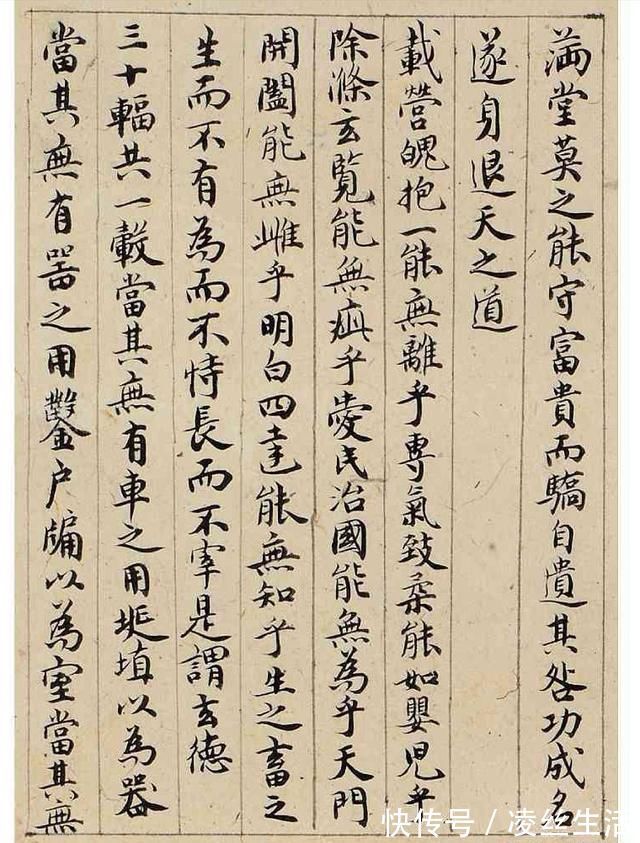 满堂莫之能守富貴而驕自遺其咎功成名
遂身退天之道
載營魄抱一能無離乎專氣致柔能如嬰兒乎
除滌玄覽能無疵乎愛民治國能無為乎天門
開闔能無雌乎明白四達能無知乎生之畜之
生而不有為而不恃長而不宰是謂玄德
三十輻共一轂當其無有車之用埏埴以為器
當其無有器之用鑿户牖以為室當其無
快传号/凌丝生活